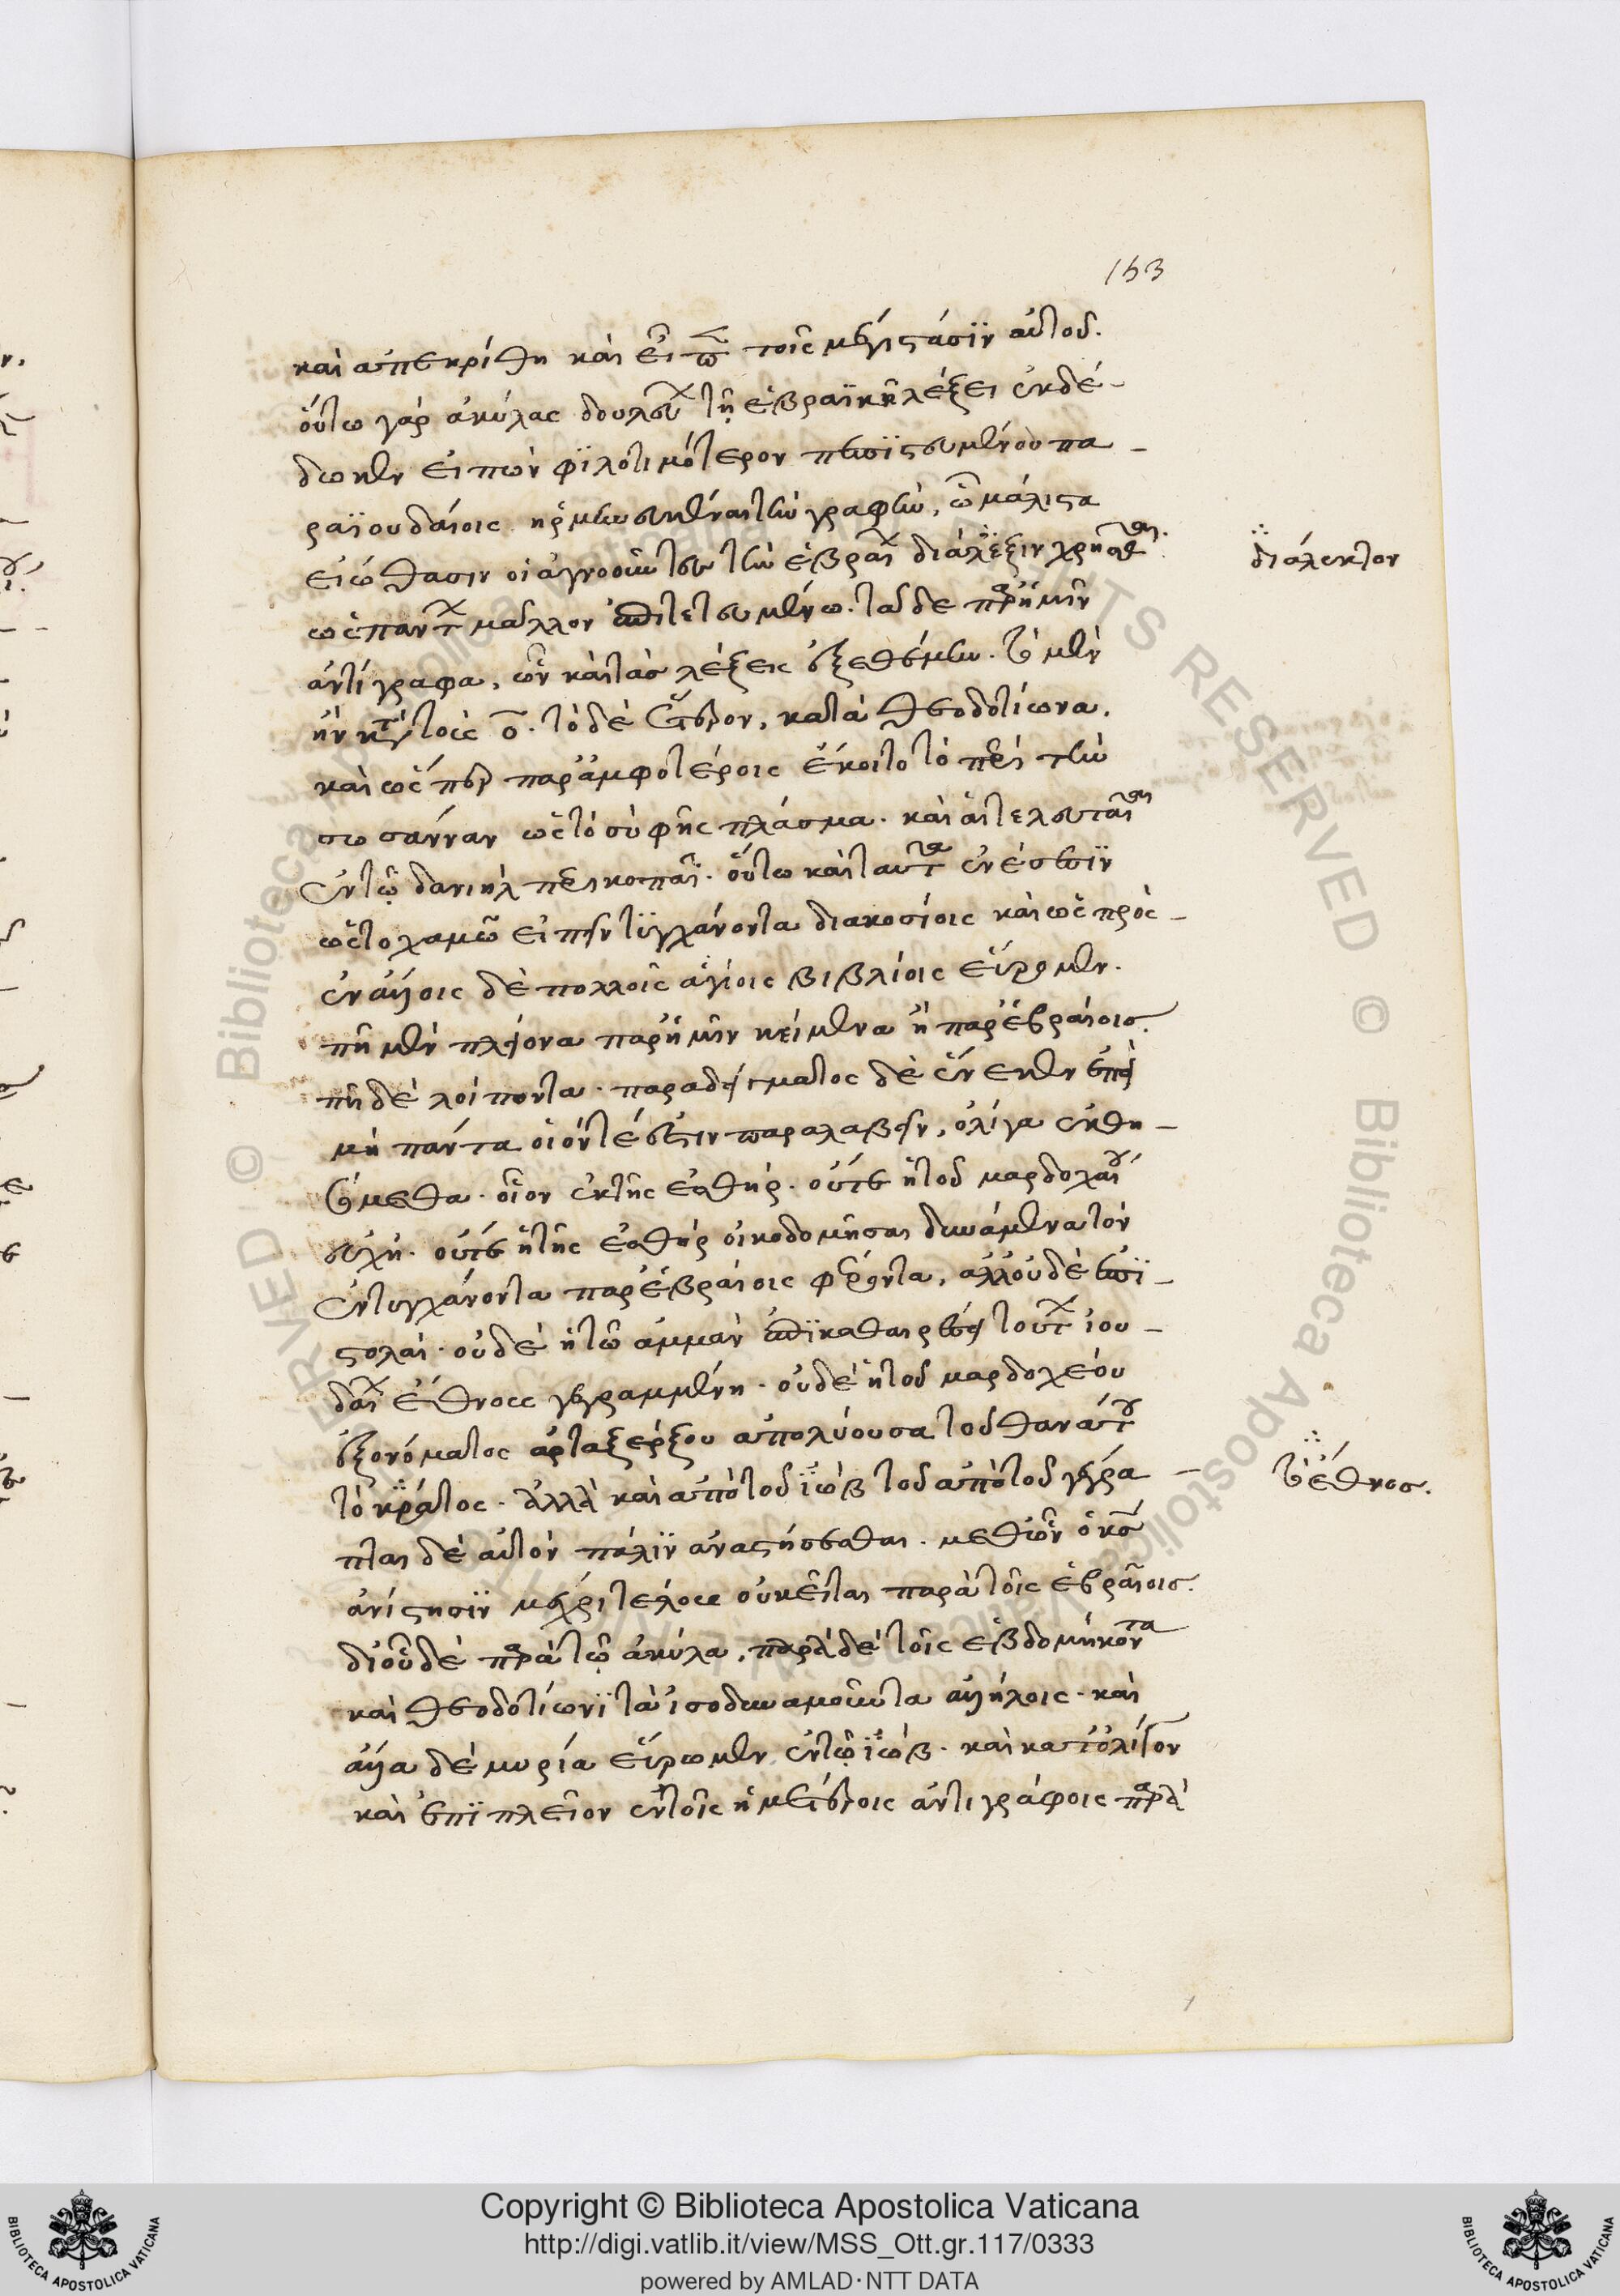 163
καὶ ἀπεκρίθη καὶ εἶπε τοῖς μεγιστάσϊν αὐτοῦ.
οὕτω γὰρ ἀκύλας δουλεύων τῇ ἑβραϊκῇ λέξει ἐκδέ-
δωκεν εἰπὼν φϊλοτιμότερον πεπϊστευμένου πα-
ρα ϊουδαίοις ἡρμηνευκέναι τὴν γραφὴν, ᾧ μάλιστα
εἰώθασιν οἱ ἀγνοοῦντες τὴν ἑβραΐων διάλεξιν χρῆσθαι.
διάλεκτον
ὡς πάντων μᾶλλον ἐπιτετευμένω. τὰ δὲ παρ' ἡμῖν
ἀντίγραφα, ὧν καὶ τὰς λέξεις ἐξεθέμην. τὸ μὲν
ἦν κατὰ τοὺς ο. τὸ δὲ ἕτερον, κατὰ θεοδοτίωνα.
καὶ ὥσπερ παρ' ἀμφοτέροις ἔκοιτο τὸ περὶ τὴν
σωσάνναν ὡς τὸ σὺ φῂς πλάσμα. καὶ αἱ τελευταῖαι
ἐν τῷ δανιὴλ περικοπαί. οὕτω καὶ ταῦτα ἐνέσεπϊν
ὡς στοχαμῶ εἰπεῖν τϋγχάνοντα διακοσίοις καὶ ὡς πρὸς-
ἐν ἄλλοις δὲ πολλοῖς ἁγίοις βιβλίοις εὕρομεν.
πῆ μὲν πλείονα παρ' ἡμῖν κείμενα ἢ παρ' ἑβραίοις.
πῆ δὲ λοίποντα. παραδείγματος δὲ ἕνεκεν ἐπεὶ
μὴ πάντα οἷόν τέ ἐστιν παραλαβεῖν, ὀλίγα ἐκθη-
σόμεθα. οἷον ἐκ τῆς ἐσθήρ. οὔτε ἡ τοῦ μαρδοχαίου
εὐχὴ. οὔτε ἡ τῆς ἐσθὴρ οἰκοδομῆσαι δυνάμενα τὸν
ἐντυγχάνοντα παρ' ἑβραίοις φέρονται, ἀλλ' οὐδὲ ἐπϊ-
στολαὶ. οὐδὲ ἡ τῶ ἀμμὰν ἐπϊ καθαιρέσει τοῦ τῶν ἰου-
δαίων ἔθνους γεγραμμένη. οὐδὲ ἡ τοῦ μαρδοχέου
ἐξ ὀνόματος ἀρταξέρξου ἀπολύουσα τοῦ θανάτου
τὸ κράτος. ἀλλὰ καὶ ἀπὸ τοῦ ϊὼβ τοῦ ἀπὸ τοῦ γέγρα-
τὸ ἔθνος.
πται δὲ αὐτὸν πάλϊν ἀναστήσεσθαι. μεθ' ὧν ὁ κύριος
ἀνίστησϊν μέχρι τέλους οὐ κεῖται παρὰ τοῖς ἑβραίοις.
διὸ οὐδὲ παρὰ τῷ ἀκύλα, παρὰ δὲ τοῖς ἑβδομήκοντα
καὶ θεοδοτίωνϊ τὰ ἰσοδυναμοῦντα ἀλλήλοις. καὶ
ἄλλα δὲ μυρία εὕρωμεν ἐν τῷ ϊὼβ. καὶ κατ' ὀλίγον
καὶ ἐπϊ πλεῖον ἐν τοῖς ἡμετέροις ἀντιγράφοις παρὰ
Copyright © Biblioteca Apostolica Vaticana
http://digi.vatlib.it/view/MSS_Ott.gr.117/0333
powered by AMLAD·NTT DATA